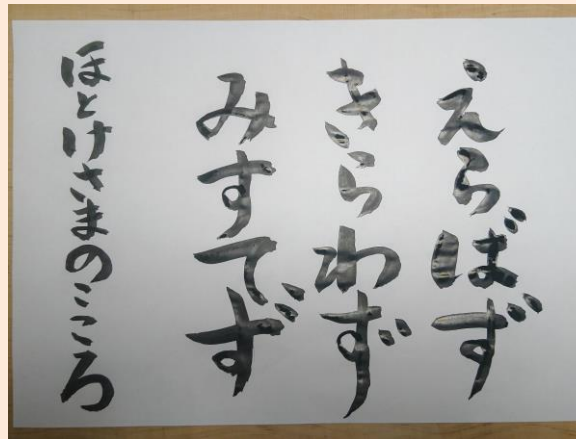 えらばず
きらわず
みすてず
ほとけさまのこころ